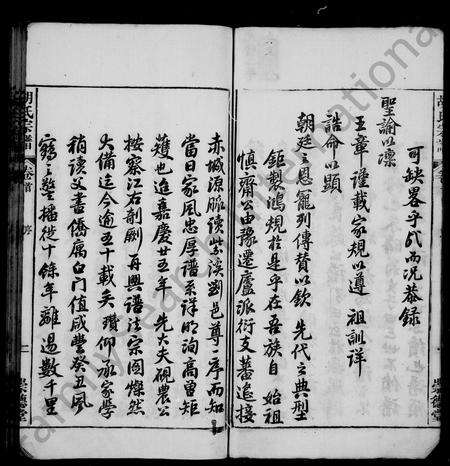 可缺畧乎哉而况恭錄
聖諭以凛
王章謹載家規以遵 祖訓詳
誥命以顯
朝廷之恩寵列傳贊以欽 先代之典型
鉅製鴻規於是乎在吾族自 始祖
慎齋公由豫遷廬派衍支蕃遙接
赤城源脈讀紫溪劉邑尊一序而知
當日家風忠厚譜系詳明洵高曾矩
矱也迨嘉慶廿五年 先大夫硯農公
按察江右剞劂再興譜法宗圖燦然
大備迄今逾五十載矣 瓚仰承家學
稍讀父書僑寓白門值咸豐癸丑風
鶴之警播徙十餘年離湯數千里
胡氏宗譜
卷首
序
一
崇德堂
胡氏宗譜
崇德堂
Family search International